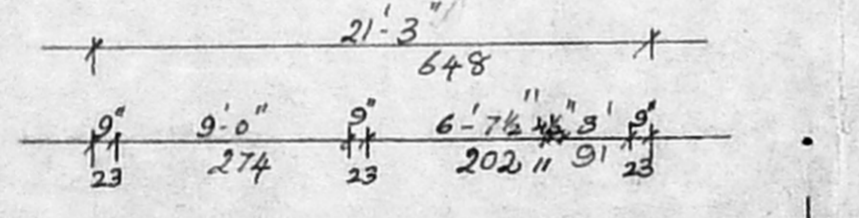 21'-3"
648
9" 9'-0" 9" 6'-7½" 4½" 3' 9"
23 274 23 202 11 91 23